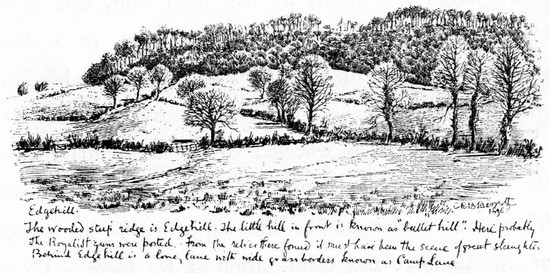 Edgehill.
The wooded steep ridge is Edgehill. The little hill in front is known as "bullet hill". Here probably
The Royalist guns were posted. From the relics there found it must have been the scene of great slaughter
Behind Edgehill is a long lane with wide grass borders known as Camp Lane